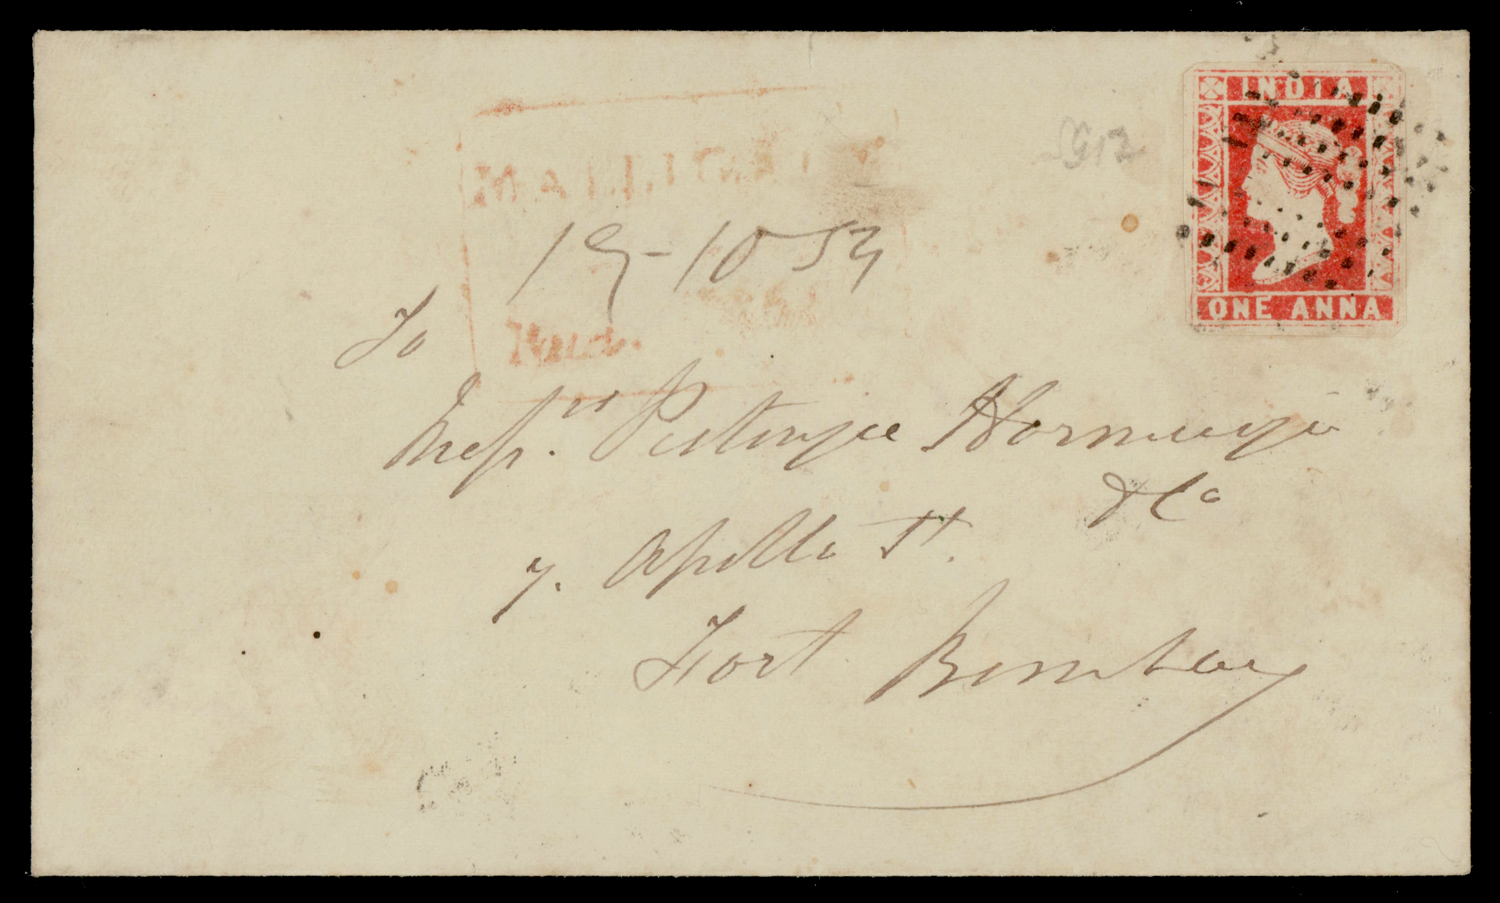 INDIA
SG12
MALLIGAUM
19-10 54
ONE ANNA
Paid.
To
Messrs. Pestonjee Hormusjee
& Co
7. Apollo St.
Fort Bombay